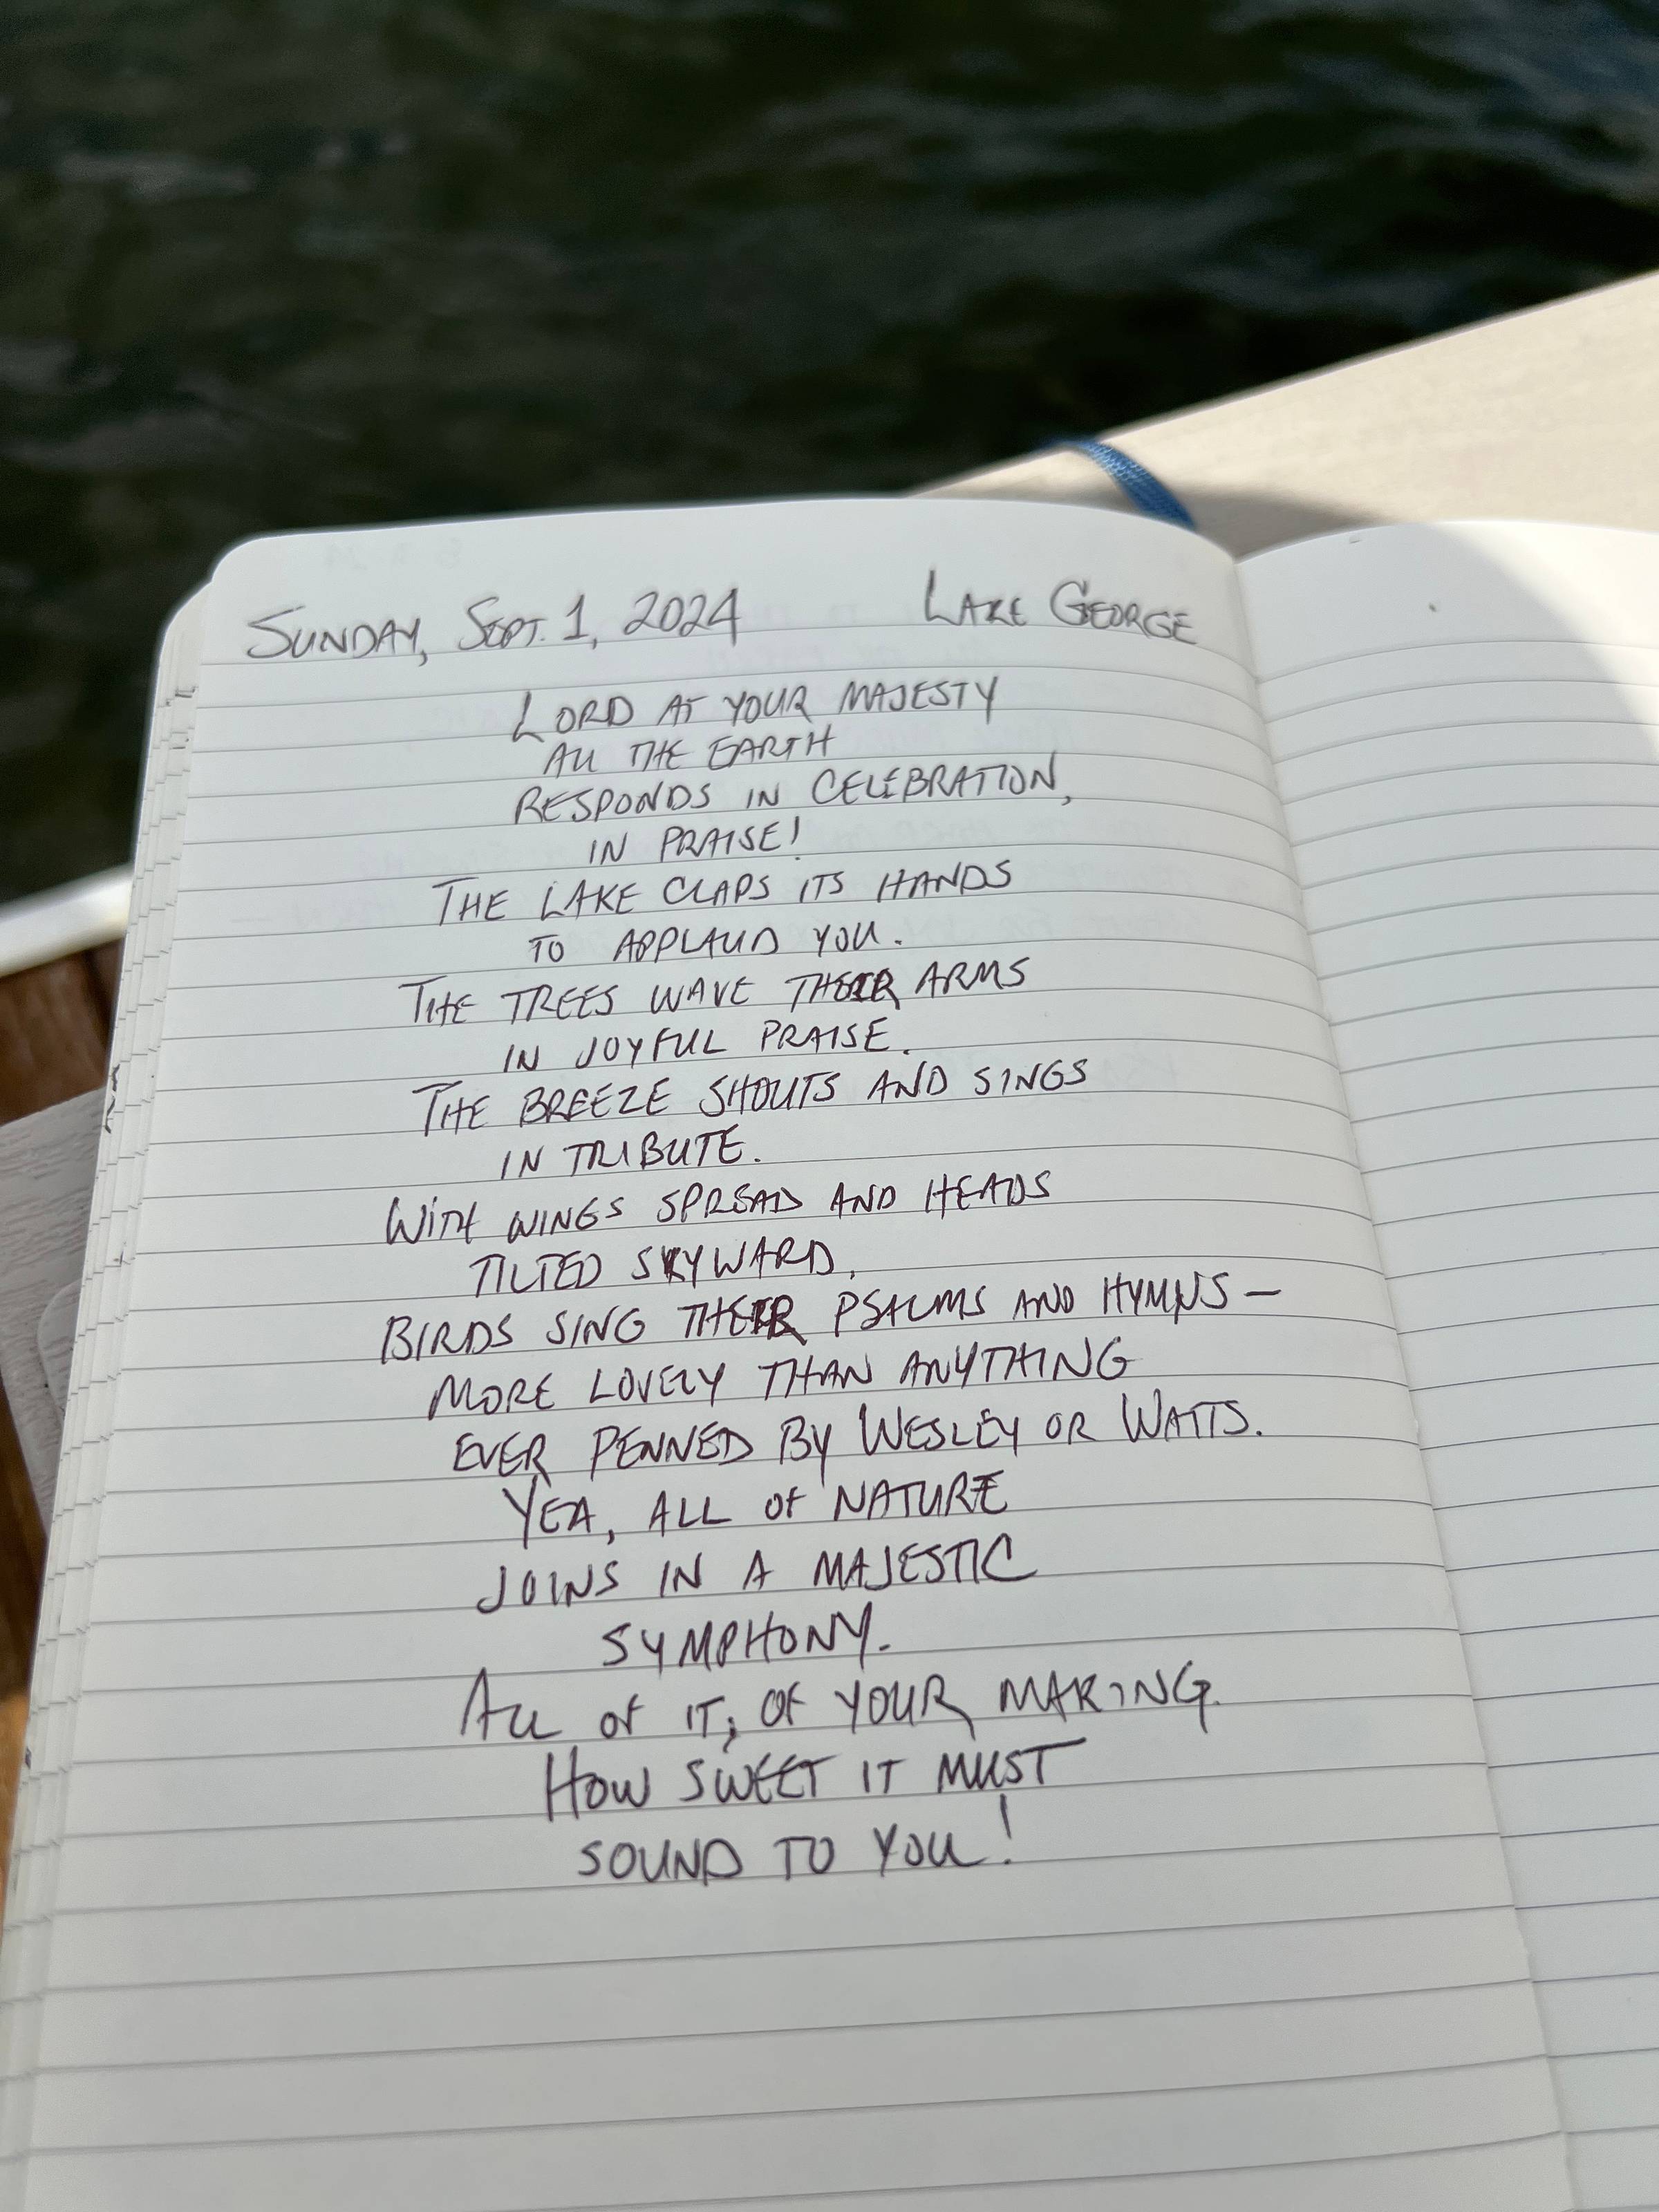 SUNDAY, SEPT. 1, 2024 LAKE GEORGE
LORD AT YOUR MAJESTY
ALL THE EARTH
RESPONDS IN CELEBRATION,
IN PRAISE!
THE LAKE CLAPS ITS HANDS
TO APPLAUD YOU.
THE TREES WAVE THEIR ARMS
IN JOYFUL PRAISE.
THE BREEZE SHOUTS AND SINGS
IN TRIBUTE.
WITH WINGS SPREAD AND HEADS
TILTED SKYWARD,
BIRDS SING THEIR PSALMS AND HYMNS —
MORE LOVELY THAN ANYTHING
EVER PENNED BY WESLEY OR WATTS.
YEA, ALL OF NATURE
JOINS IN A MAJESTIC
SYMPHONY.
ALL OF IT, OF YOUR MAKING.
HOW SWEET IT MUST
SOUND TO YOU!